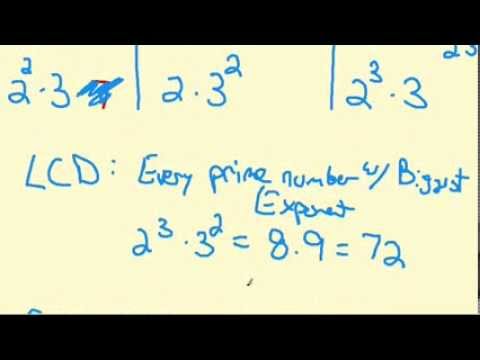 2² · 3 | 2 · 3² | 2³ · 3
LCD: Every prime number w/ Biggest
Exponent
2³ · 3² = 8 · 9 = 72